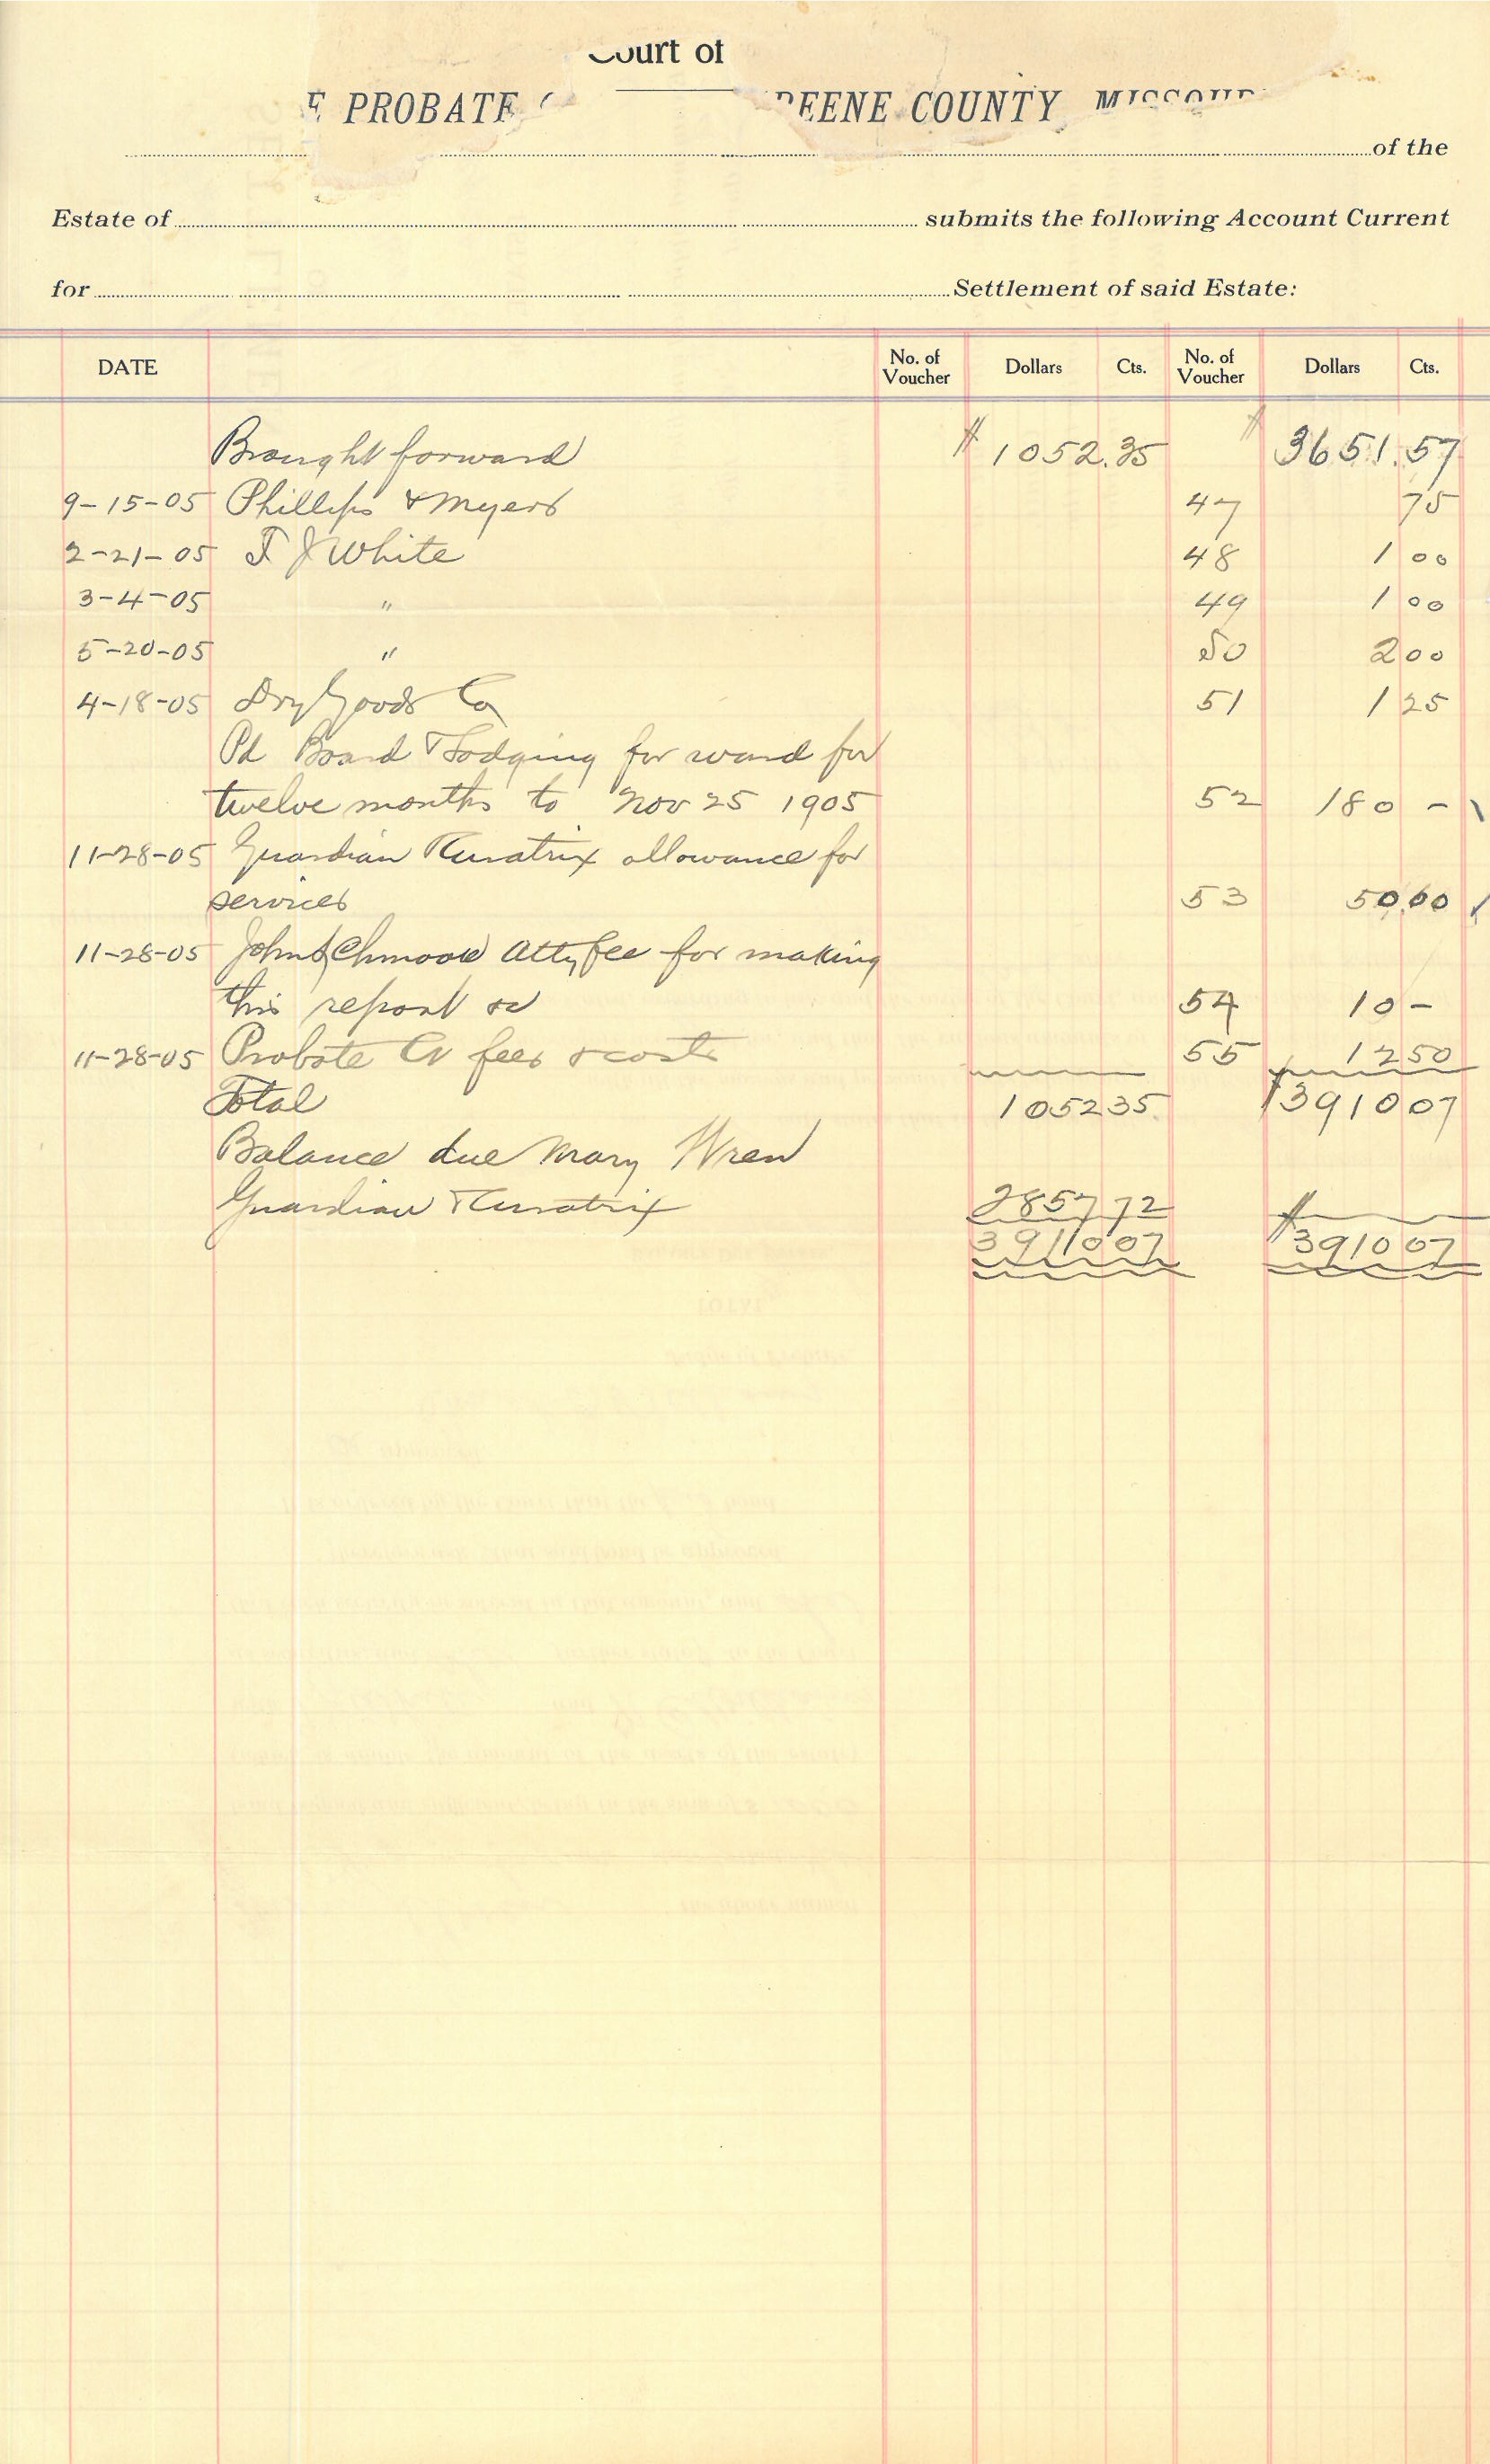 Court of
E PROBATE C REENE COUNTY, MISSOUR
of the
Estate of submits the following Account Current
for Settlement of said Estate:
DATE No. of Voucher Dollars Cts. No. of Voucher Dollars Cts.
Brought forward $ 1052.35 $ 3651.57
9-15-05 Phillips & Myers 47 75
2-21-05 T J White 48 1 00
3-4-05 " 49 1 00
5-20-05 " 50 2 00
4-18-05 Dry Goods Co 51 1 25
Pd Board & Lodging for ward for
twelve months to Nov 25 1905 52 180 -
11-28-05 Guardian & Curatrix allowance for
services 53 50.00
11-28-05 John Schmook Atty fee for making
this report &c 54 10 -
11-28-05 Probate Ct fees & costs 55 12 50
Total 1052 35 $ 3910 07
Balance due Mary Wren
Guardian & Curatrix 2857 72
3910 07 $ 3910 07